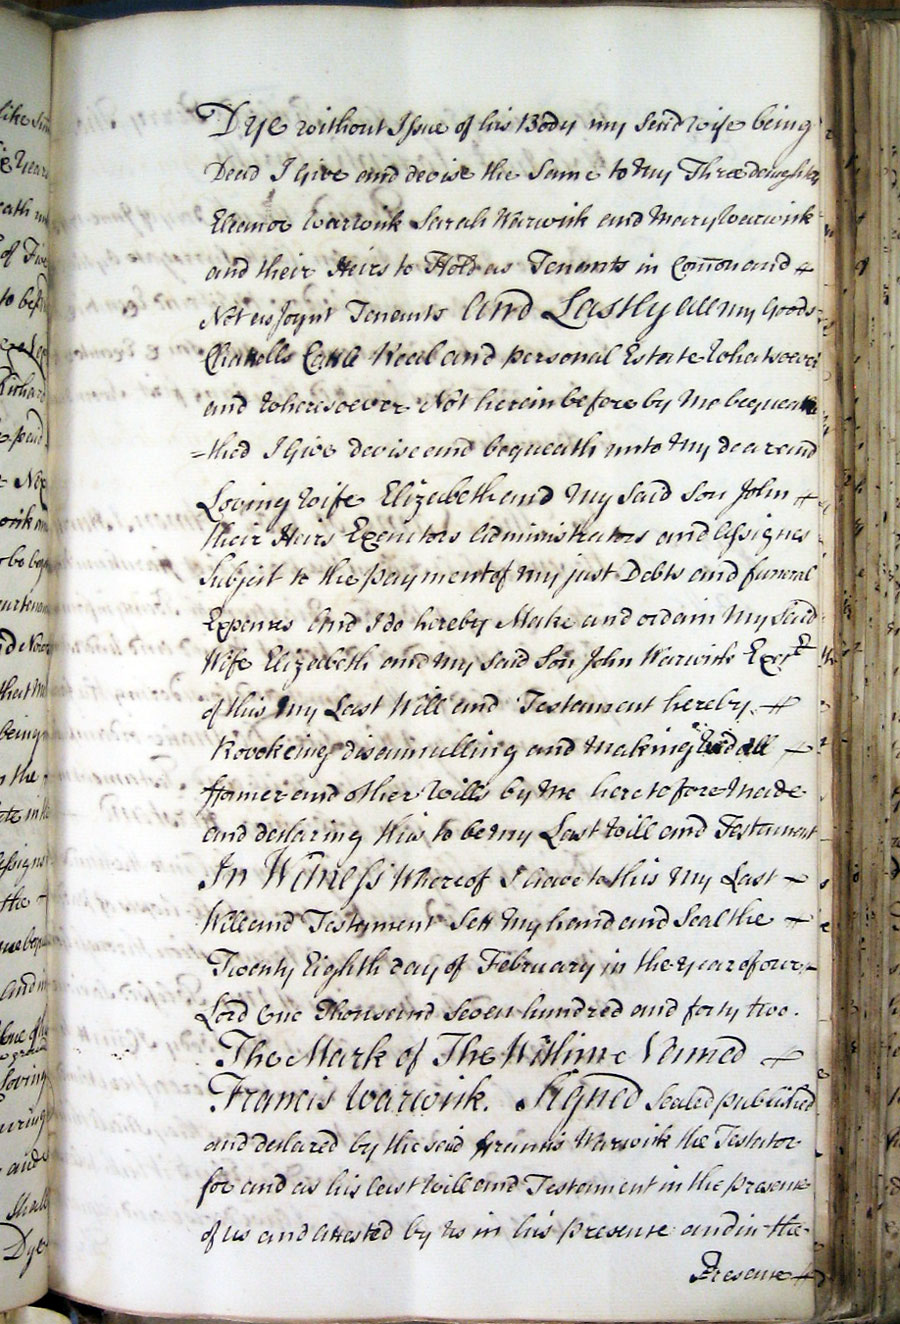 Dye without Issue of his Body my said wife being
Dead I Give and devise the Same to my Three daughters
Eleanor Warwick Sarah Warwick and Mary Warwick
and their Heirs to Hold as Tenants in Com̄on and
Not as Joynt Tenents And Lastly all my Goods
Chattells Real and personal Estate whatsoever
and wheresoever Not herein before by me bequea
=thed I Give devise and bequeath unto my dear and
Loving Wife Elizabeth and my said son John
their Heirs Executors Administrators and Assignes
Subject to the payment of my just Debts and funeral
Expences And I do hereby Make and ordain my said
Wife Elizabeth and my said Son John Warwick Exec.rs
of this my Last Will and Testament hereby
Revokeing disannulling and making Void all
former and other Wills by me heretofore Made
and declaring this to be my Last Will and Testament
In Witness Whereof I have to this my Last
Will and Testament Sett my hand and Seal the
Twenty Eighth day of February in the year of our
Lord One Thousand Seven hundred and forty two.
The Mark of The Within Named
Francis Warwick. Signed Sealed published
and declared by the said Francis Warwick the Testator
for and as his Last Will and Testament in the presence
of us and attested by us in his presence and in the
Presence